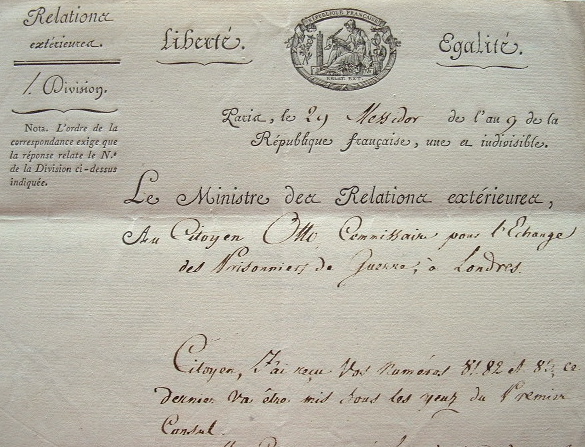 Relations
extérieures.
1. Division.
Nota. L'ordre de la
correspondance exige que
la réponse relate le N.º
de la Division ci-dessus
indiquée.
Liberté.
RÉPUBLIQUE FRANÇAISE
RELAT. EXT.
Egalité.
Paris, le 29 Messidor de l'an 9 de la
République française, une et indivisible.
Le Ministre des Relations extérieures,
Au Citoyen Otto Commissaire pour l'Echange
des Prisonniers de Guerre, à Londres.
Citoyen, J'ai reçu Vos Numéros 81. 82 et 83, ce
dernier va être mis sous les yeux du Premier
Consul.